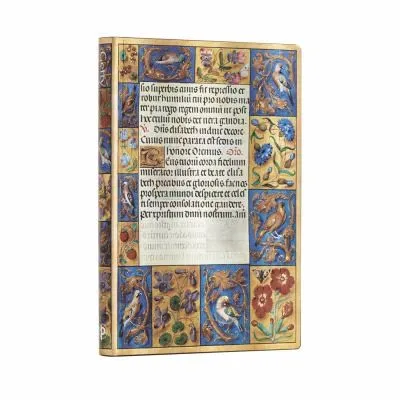 sio superbis cuius fit repressio et
robur humilium cui pro nobis ma
ter pia rego regem omnium ut post
hec exilium nobis det vera gaudia.
Dña elisabeth indue decore
Cuius nunc parata est sedis in
honore Oremus.
tuorum corda fidelium
miserator: illustra et beate elisa
beth precibus et gloriosis fac nos
prospera mundi despicere et celes
ti semper consolatione gaudere.
per christum dnm nostrum. am